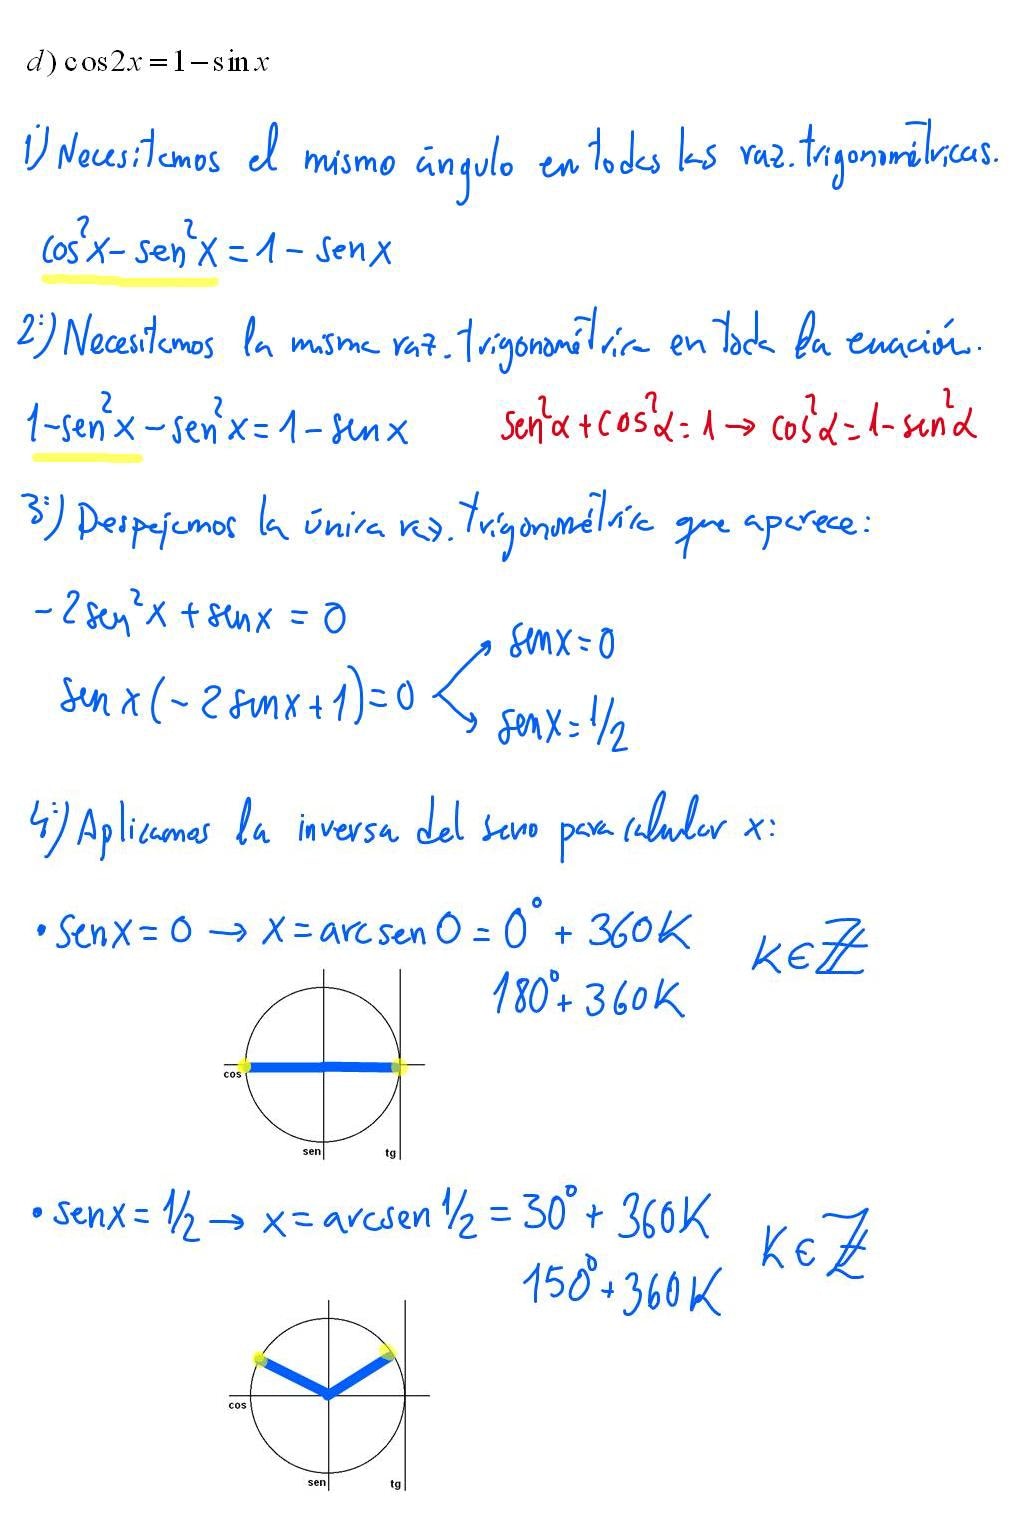 d) cos2x = 1 − sin x
1º) Necesitamos el mismo ángulo en todas las raz. trigonométricas.
cos²x − sen²x = 1 − senx
2º) Necesitamos la misma raz. trigonométrica en toda la ecuación.
1−sen²x − sen²x = 1 − senx    sen²α + cos²α = 1 → cos²α = 1 − sen²α
3º) Despejamos la única raz. trigonométrica que aparece:
−2sen²x + senx = 0
senx = 0
sen x (−2senx + 1) = 0
senx = 1/2
4º) Aplicamos la inversa del seno para calcular x:
• senx = 0 → x = arcsen 0 = 0° + 360K    K ∈ ℤ
180° + 360K
cos
sen tg
• senx = 1/2 → x = arcsen 1/2 = 30° + 360K    K ∈ ℤ
150° + 360K
cos
sen tg